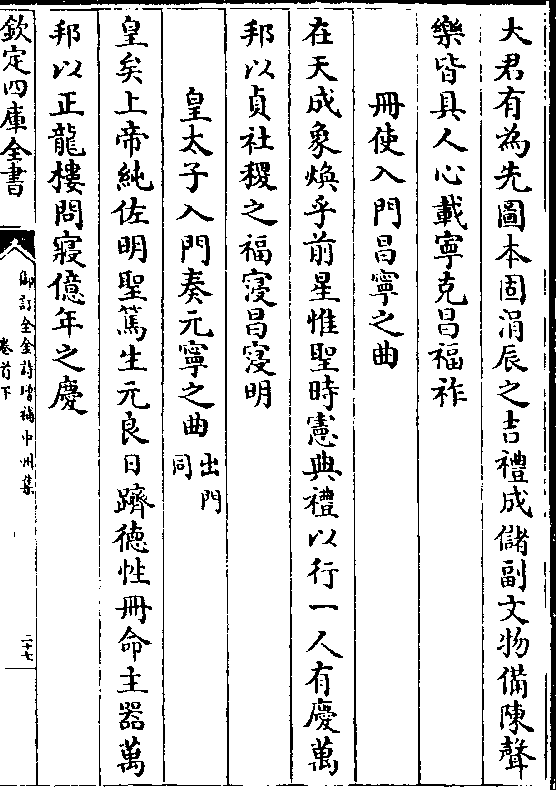 大君有為先圖本固涓辰之吉禮成儲副文物備陳聲
樂皆具人心載寧克昌福祚
冊使入門昌寧之曲
在天成象煥乎前星惟聖時憲典禮以行一人有慶萬
邦以貞社稷之福寖昌寖明
皇太子入門奏元寧之曲出門同
皇矣上帝純佐明聖篤生元良日躋德性冊命主器萬
邦以正龍樓問寢億年之慶
欽定四庫全書
御訂全金詩增補中州集
卷首下
二十七